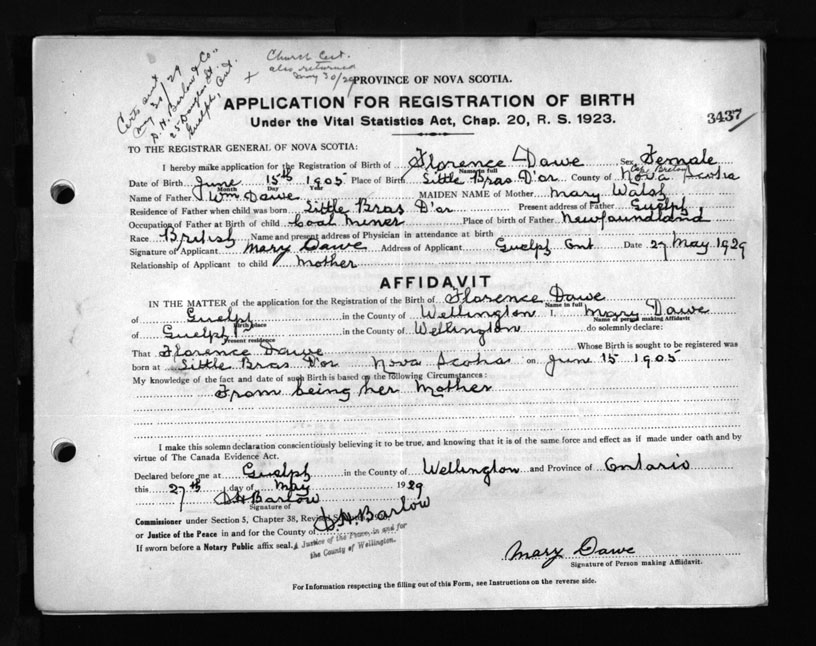 Certs sent
May 30/29
D. H. Barlow & Co
25 Douglas St.
Guelph, Ont.
Church Cert.
also returned
May 30/29
PROVINCE OF NOVA SCOTIA.
APPLICATION FOR REGISTRATION OF BIRTH
Under the Vital Statistics Act, Chap. 20, R. S. 1923.
3437
TO THE REGISTRAR GENERAL OF NOVA SCOTIA:
I hereby make application for the Registration of Birth of Florence Dawe Sex Female
Name in full
Cape Breton
Date of Birth June 15th 1905 Place of Birth Little Bras D'or County of Nova Scotia
Month Day Year
Name of Father Wm Dawe MAIDEN NAME of Mother Mary Walsh
Residence of Father when child was born Little Bras D'or Present address of Father Guelph
Occupation of Father at Birth of child Coal Miner Place of birth of Father Newfoundland
Race British Name and present address of Physician in attendance at birth
Signature of Applicant Mary Dawe Address of Applicant Guelph Ont Date 27 May 1929
Relationship of Applicant to child Mother
AFFIDAVIT
IN THE MATTER of the application for the Registration of the Birth of Florence Dawe
Name in full
of Guelph in the County of Wellington I, Mary Dawe
Birth place Name of person making Affidavit
of Guelph in the County of Wellington do solemnly declare:
Present residence
That Florence Dawe Whose Birth is sought to be registered was
born at Little Bras D'or Nova Scotia on June 15 1905
My knowledge of the fact and date of such Birth is based on the following Circumstances:
From being her Mother
I make this solemn declaration conscientiously believing it to be true, and knowing that it is of the same force and effect as if made under oath and by
virtue of The Canada Evidence Act.
Declared before me at Guelph in the County of Wellington and Province of Ontario
this 27th day of May 1929
D H Barlow
Signature of
Commissioner under Section 5, Chapter 38, Revised
or Justice of the Peace in and for the County of D. H. Barlow
If sworn before a Notary Public affix seal. A Justice of the Peace, in and for
the County of Wellington.
Mary Dawe
Signature of Person making Affidavit.
For Information respecting the filling out of this Form, see Instructions on the reverse side.